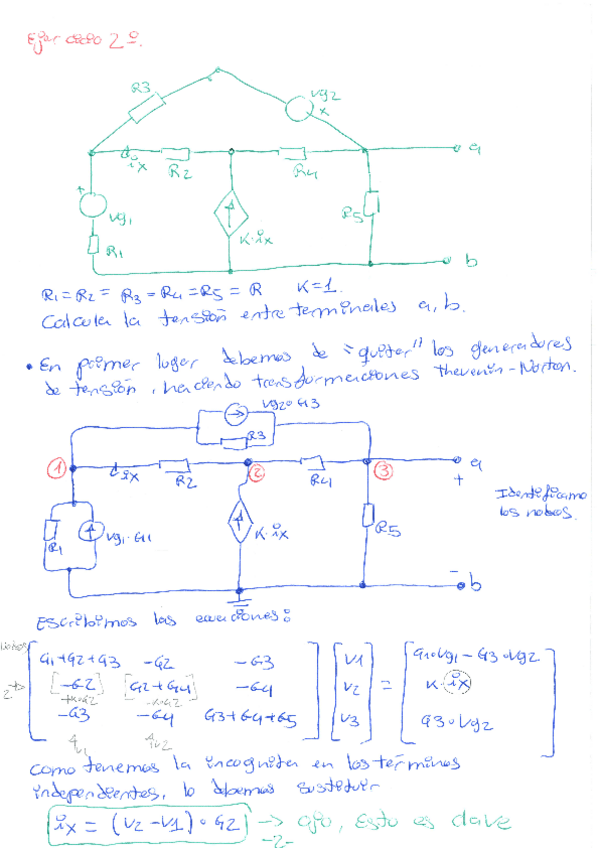 Ejercicio 2º.
R3
vg2
x
a
ix
R2
R4
+
vg1
R5
K·ix
R1
b
R1=R2= R3=R4=R5=R K=1.
Calcula la tensión entre terminales a, b.
• En primer lugar debemos de "quitar" los generadores
de tensión, haciendo transformaciones Thevenin-Norton.
vg2·G3
R3
1
ix
R2
2
R4
3
a
+
Identificamo
los nodos.
R1
vg1·G1
K·ix
R5
-
b
Escribimos las ecuaciones:
G1+G2+G3 -G2 -G3 V1 G1·vg1-G3·vg2
2 [-G2] [G2+G4] -G4 V2 = K·ix
+K·G2 -K·G2
-G3 -G4 G3+G4+G5 V3 G3·vg2
como tenemos la incognita en los términos
independientes, lo debemos sustituir
ix = (V2-V1)·G2 → ojo, esto es clave
-2-